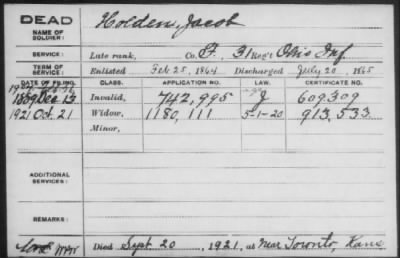 DEAD
NAME OF SOLDIER: Holden, Jacob
SERVICE: Late rank, Co. F, 31 Reg't Ohio Inf.
TERM OF SERVICE: Enlisted Feb 25, 1864 Discharged July 20, 1865
DATE OF FILING. CLASS. APPLICATION NO. LAW. CERTIFICATE NO.
1889 Dec 13 Invalid, 742,995 J 609309
1921 Oct. 21 Widow, 1180,111 5-1-20 913,533
Minor,
ADDITIONAL SERVICES:
REMARKS:
Died Sept. 20, 1921, at Near Toronto, Kans.